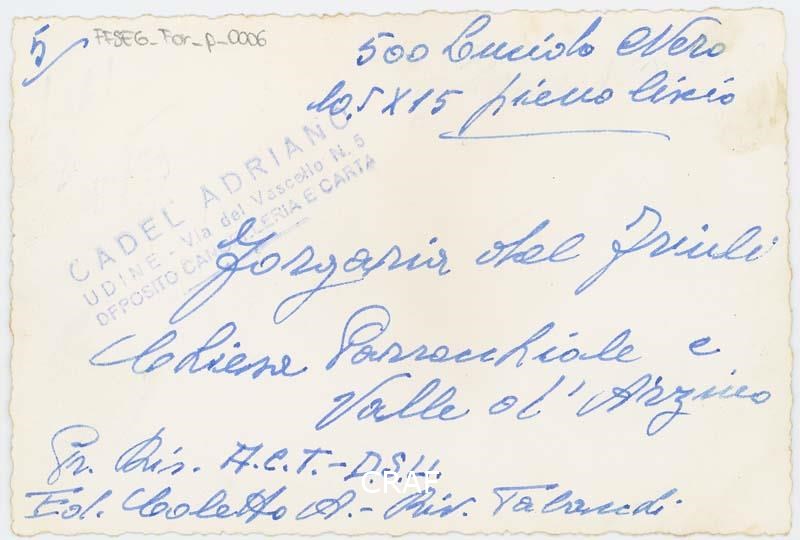 5
FFSEG_For_p_0006
500 Lucido Nero
10,5 X 15 pieno liscio
CADEL ADRIANO
UDINE - Via del Vascello N. 5
DEPOSITO CANCELLERIA E CARTA
Forgaria del Friuli
Chiesa Parrocchiale e
Valle d'Arzino
Pr. Ris. A.C.T. -
CRAF
Ed. Coletto A. - Riv. Tabacchi